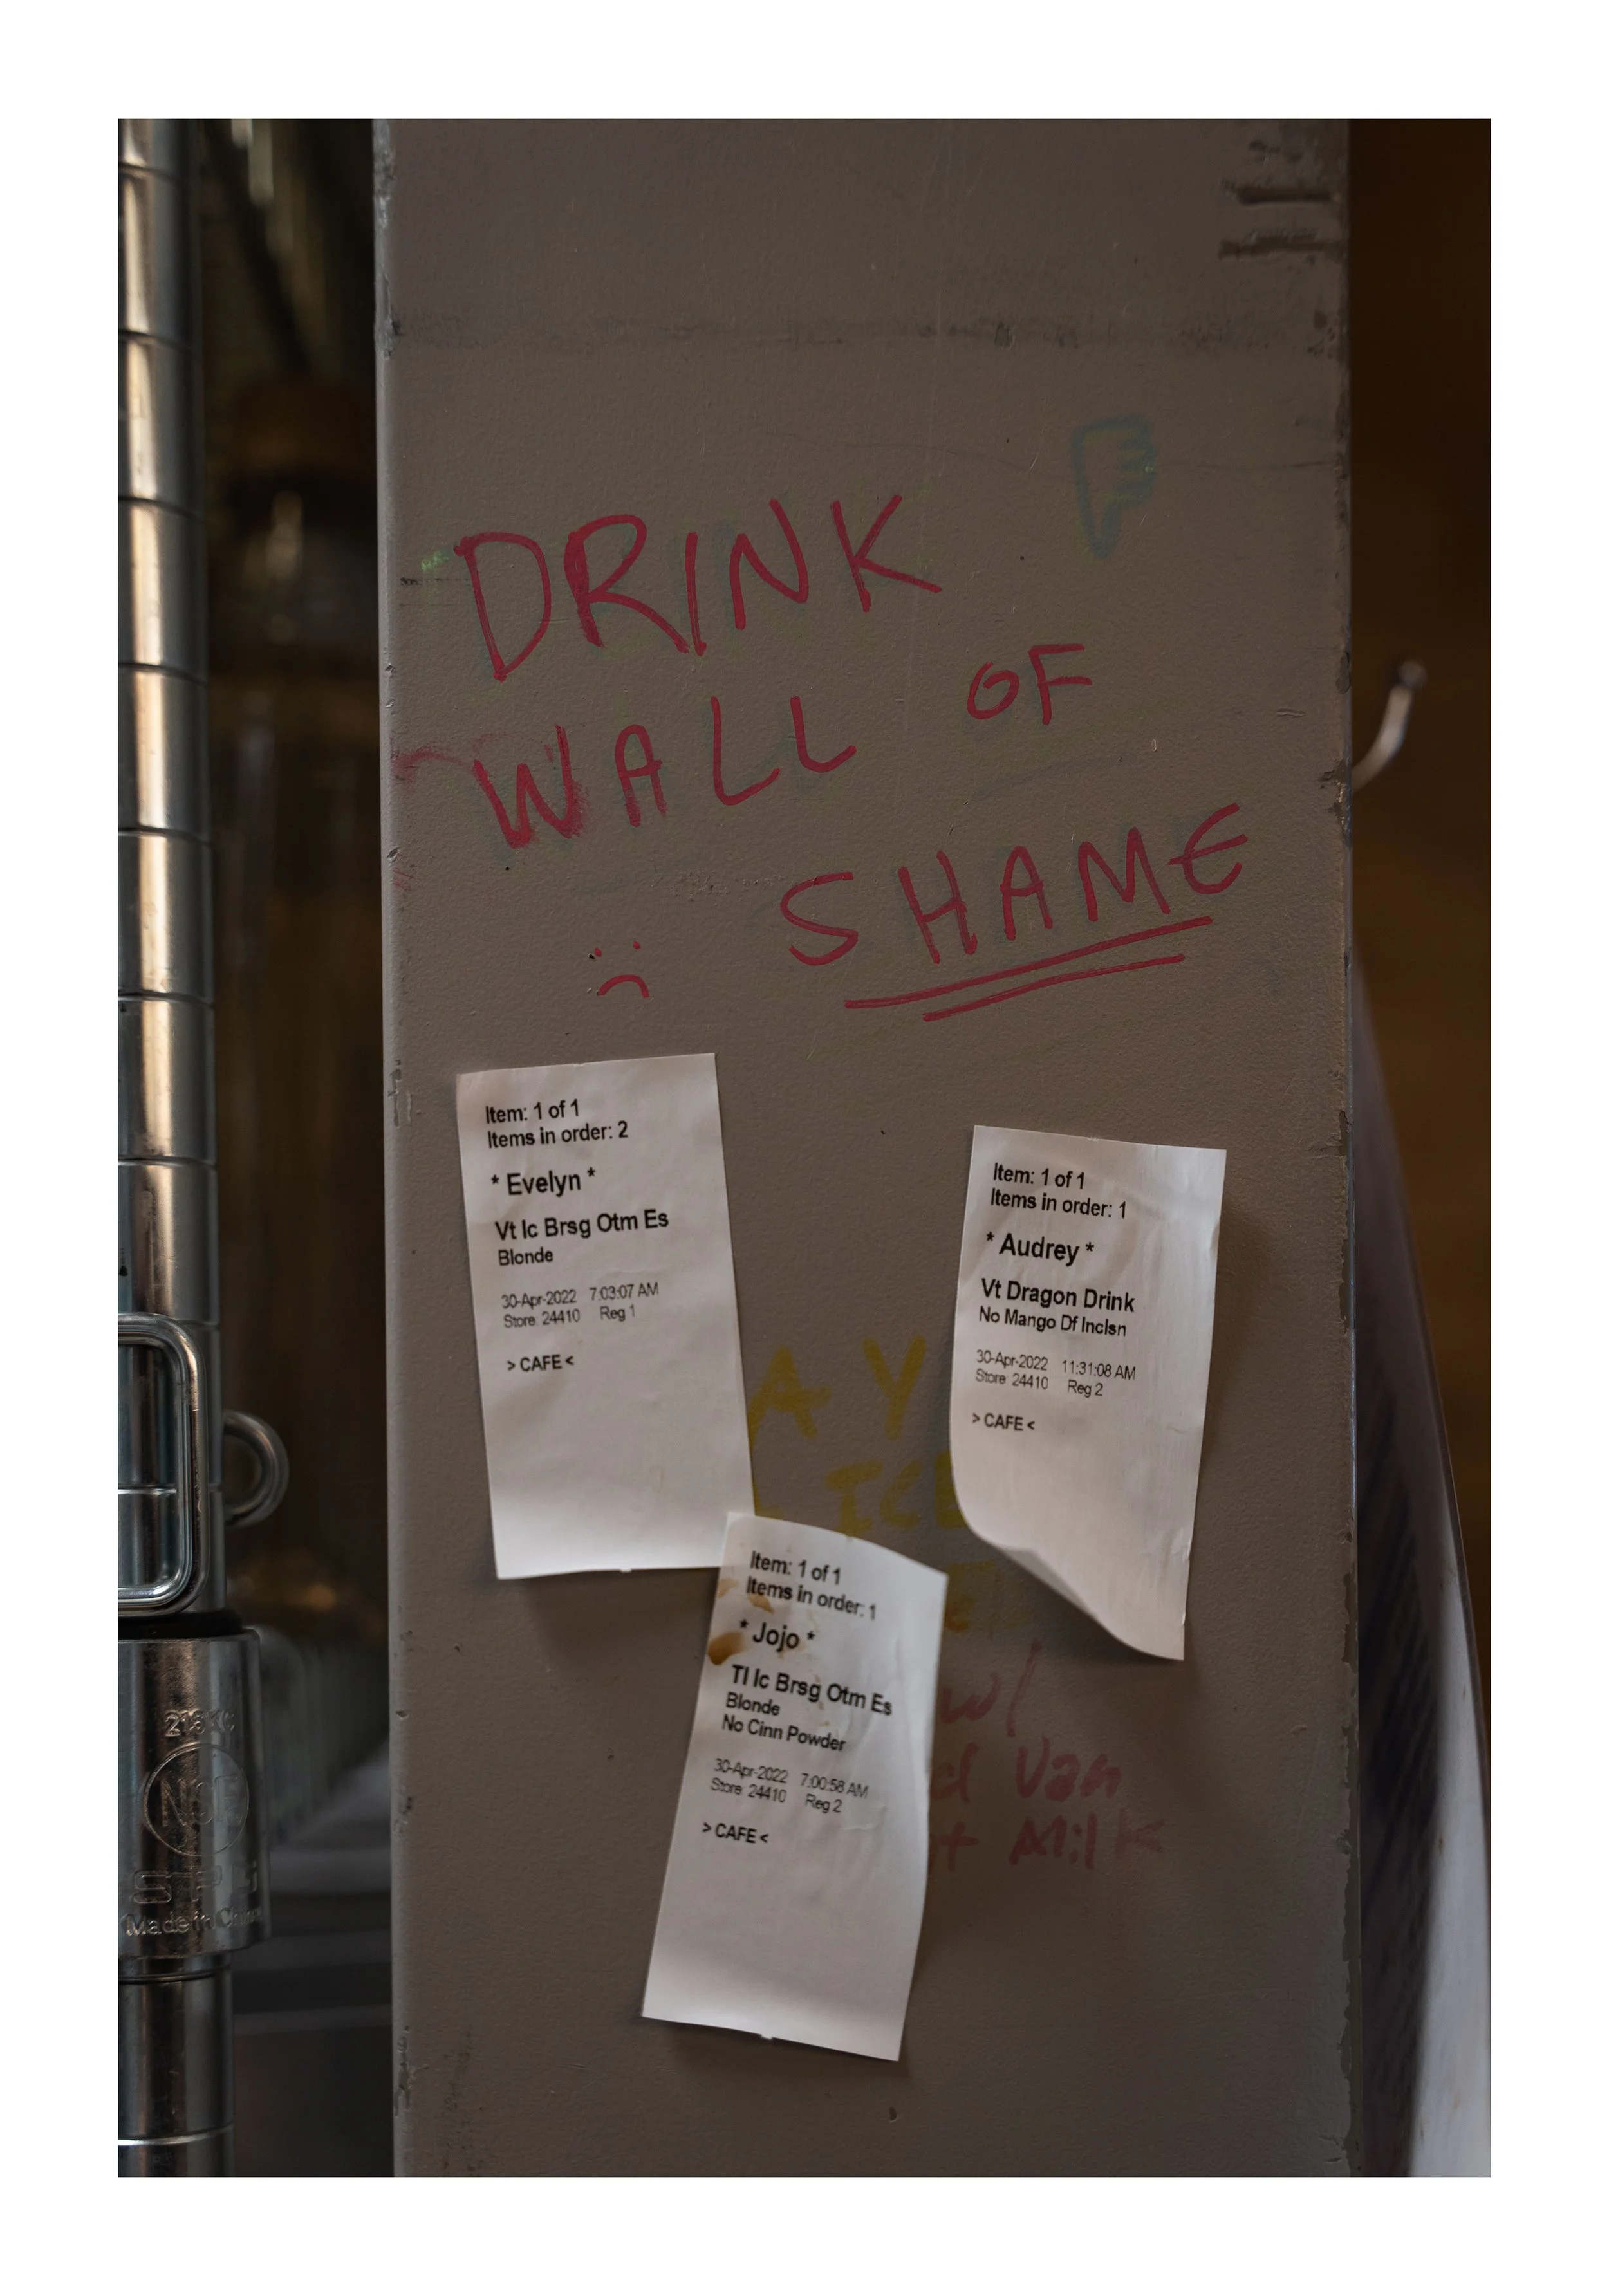 DRINK
WALL OF
SHAME
:(
Item: 1 of 1
Items in order: 2
* Evelyn *
Vt Ic Brsg Otm Es
Blonde
30-Apr-2022 7:03:07 AM
Store 24410 Reg 1
> CAFE <
Item: 1 of 1
Items in order: 1
* Audrey *
Vt Dragon Drink
No Mango Df Inclsn
30-Apr-2022 11:31:08 AM
Store 24410 Reg 2
> CAFE <
AY
ICE
Item: 1 of 1
Items in order: 1
* Jojo *
Tl Ic Brsg Otm Es
Blonde
No Cinn Powder
30-Apr-2022 7:00:58 AM
Store 24410 Reg 2
> CAFE <
w/
d Van
Milk
NSF
Made in